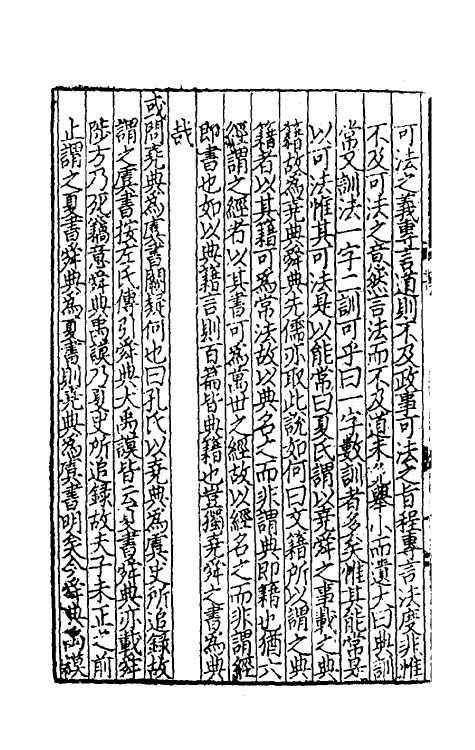 可法之義專言道則不及政事可法之旨程專言法度非惟
不及可法之意然言法而不及道未免舉小而遺大曰典訓
常又訓法一字二訓可乎曰一字數訓者多矣惟其能常是
以可法惟其可法是以能常曰夏氏謂以堯舜之事載之典
籍故為堯典舜典先儒亦取此說如何曰文籍所以謂之典
籍者以其籍可為常法故以典名之而非謂典即籍也猶六
經謂之經者以其書可為萬世之經故以經名之而非謂經
即書也如以典籍言則百篇皆典籍也豈獨堯舜之書為典
哉
或問堯典為虞書闕疑何也曰孔氏以堯典為虞史所追錄故
謂之虞書按左氏傳引舜典大禹謨皆云夏書舜典亦載舜
陟方乃死竊意舜典禹謨乃夏史所追錄故夫子未正之前
止謂之夏書舜典為夏書則堯典為虞書明矣今舜典禹謨